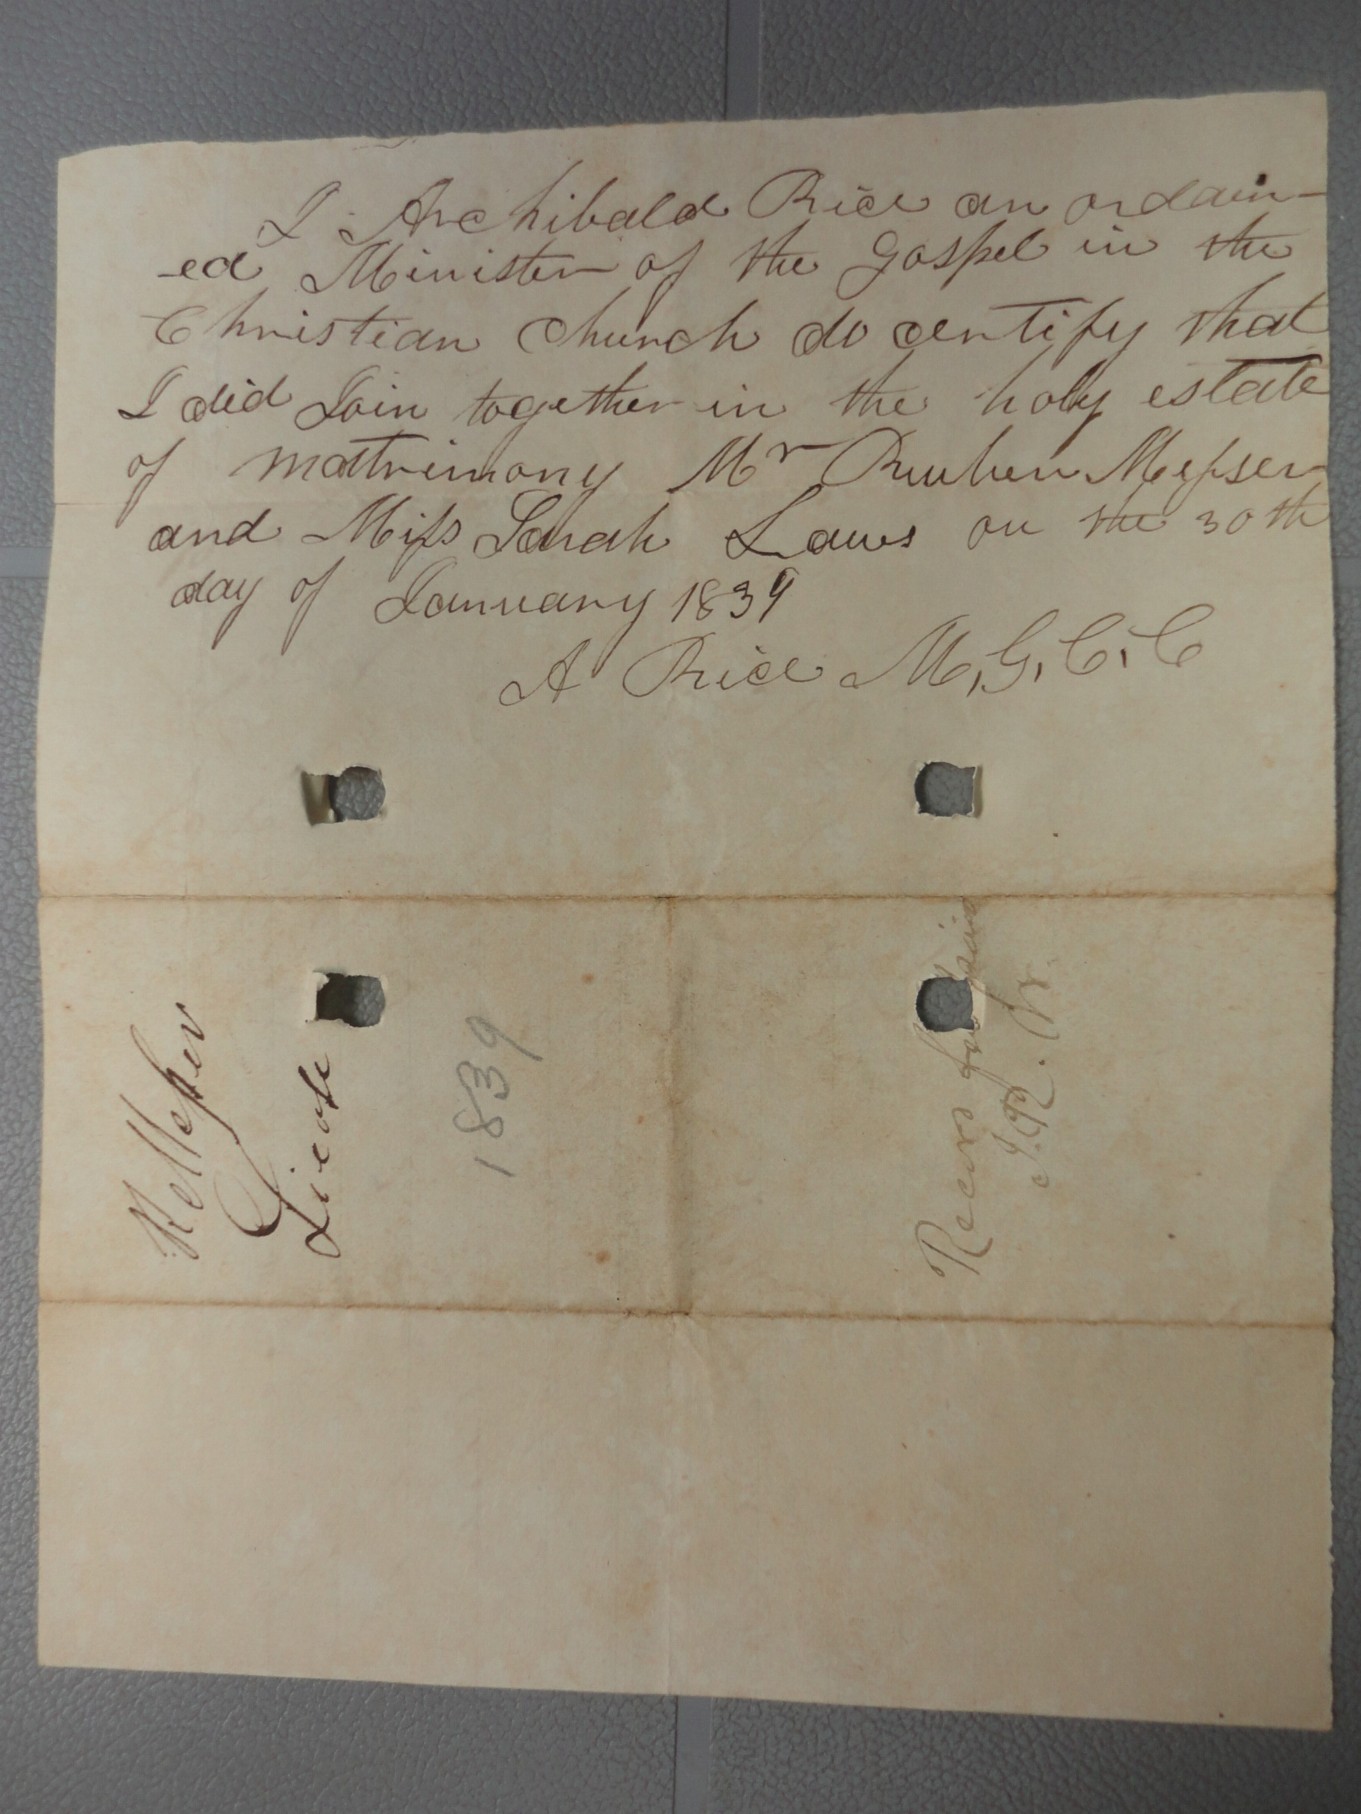 I Archibald Rice an ordain-
-ed Minister of the Gospel in the
Christian Church do certify that
I did Join together in the holy estate
of matrimony Mr Reuben Messer
and Miss Sarah Laws on the 30th
day of January 1839
A Rice M,G,C,C
R Messer
License
1839